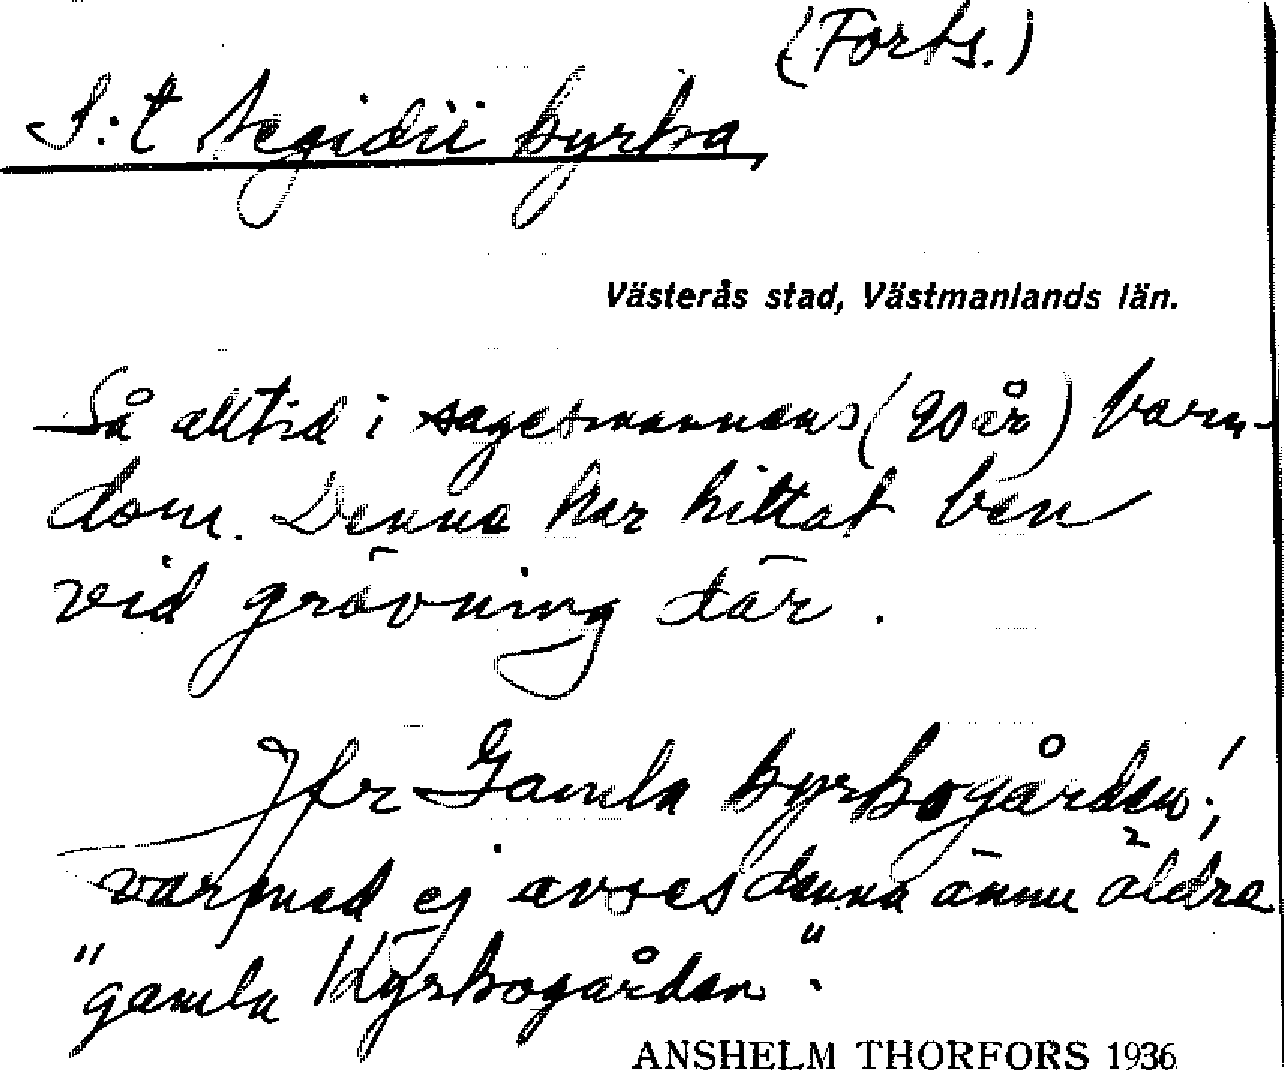 (Forts.)
S:t Aegidii kyrka,
Västerås stad, Västmanlands län.
Så alltid i sagesmannens (90 år) barn-
dom. Denna har hittat ben
vid grävning där.
Jfr Gamla kyrkogården!,
varmed ej avses denna ännu äldre
"gamla kyrkogården".
ANSHELM THORFORS 1936